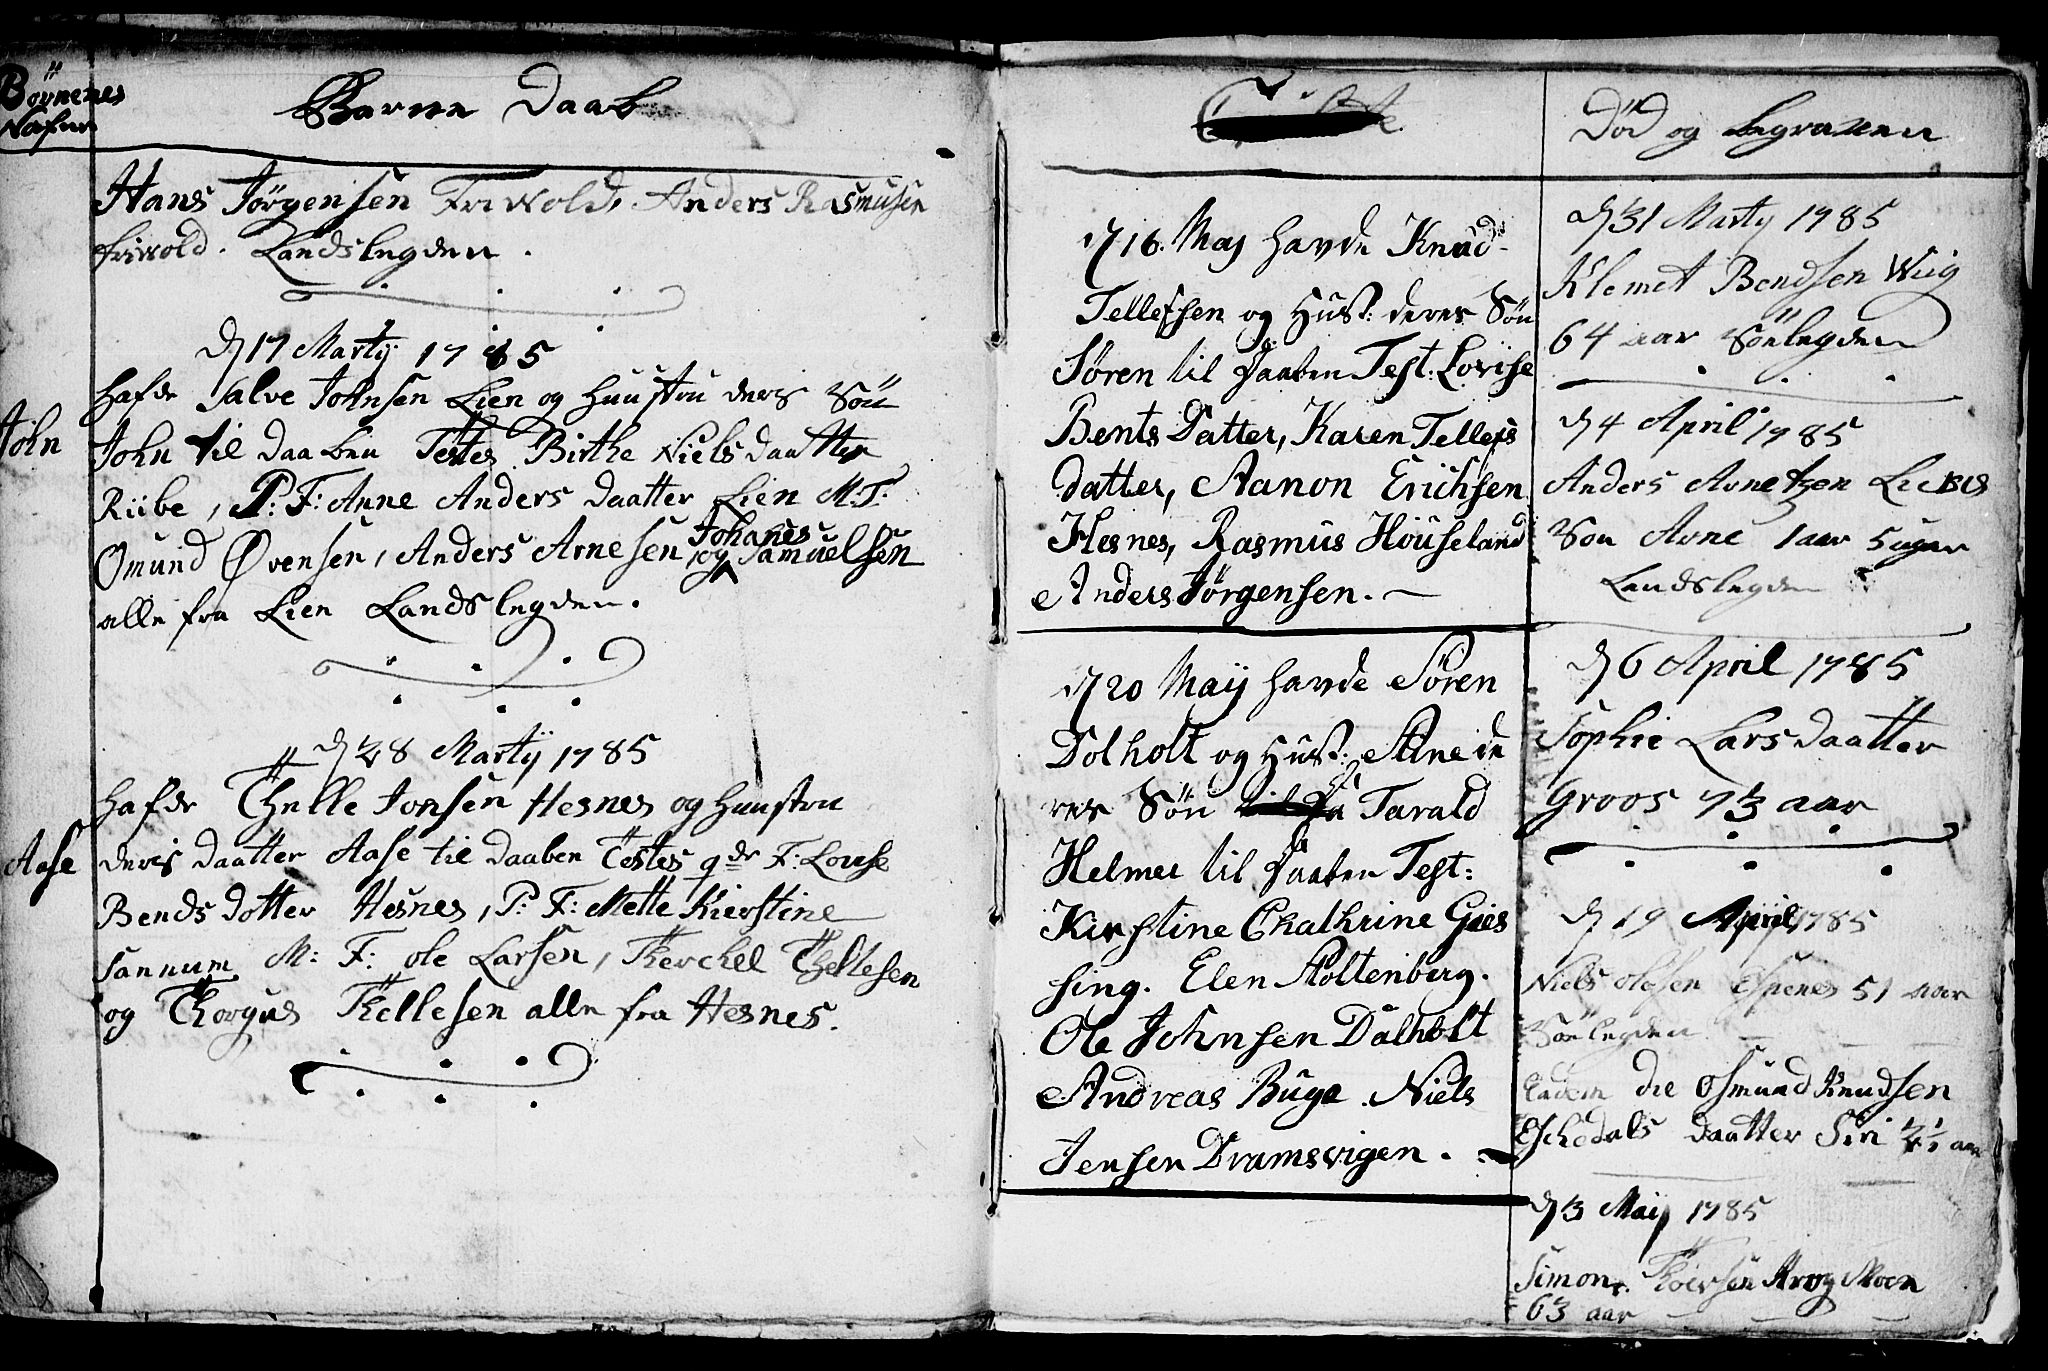 Börnenes
Nafne
Barne Daab
Hans Jörgensen Friwold, Anders Rasmusen
friwold. Landslegden.
d 17 Martij 1785
hafde Salve Johnsen Lien og Huustru deris Sön
John
John til daaben Testes Birthe Nielsdaatter
Riibe, P: F: Anne Anders daatter Lien M: F:
Omund Øvensen, Anders Arnesen, og Johanes Samuelsen
alle fra Lien Landslegden.
d 28 Martij 1785
hafde Thelle Jonsen Hesnes og Huustru
Aase
deris daatter Aase til daaben Testes qde F: Louse
Bends dotter Hesnes, P: F: Mette Kierstine
Sannum M: F: ole Larsen, Therchel Thellesen
og Thorgus Thellesen alle fra Hesnes.
d 16. Maj havde Knud
Tellefsen og Hust: deres Sön
Søren til Daaben Test: Lovise
Bents Datter, Karen Tellefs
datter, Aanon Erichsen
Hesnes, Rasmus Houseland
Anders Jørgensen. —
d 20 Maij havde Søren
Dolholt og Hust: Anne de
res Sön Tarald
Helmer til Daaben Test:
Kirstine Chathrine Gies
sing. Elen Stoltenberg.
Ole Johnsen Dalholt
Andreas Buge. Niels
Jensen Dramsvigen. —
Död og begravene
d 31 Martij 1785
Klemet Bendsen Wiig
64 aar Sönlegden
d 4 April 1785
Anders Arnetzen Liens
Son Arne 1 aar 5 uger
Landslegden
d 6 April 1785
Sophie Lars daatter
Groos 73 aar
d 19 April 1785
Niels olesen Espenes 51 aar
Sönlegden
Eadem die Osmund Knudsen
Eschedals daatter Siri 2 1/2 aar
d 3 Maij 1785
Simon Thoersen Moen
63 aar